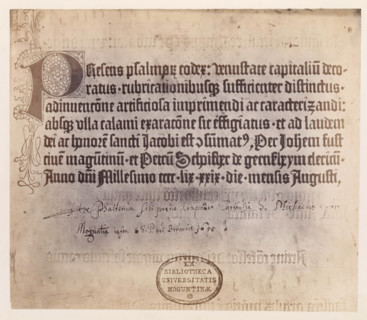 Presens psalmorum codex: venustate capitaliū deco-
ratus. rubricationibusqz sufficienter distinctus.
adinuencōne artificiosa imprimendi ac caracterizandi:
absqz vlla calami exaracōne sic effigiatus. et ad laudem
dei ac honorē sancti Jacobi est ɔsūmatꝰ, Per Johēm fust
ciuē magūtinū. et Petrū Schoiffher de gernssheym clericū.
Anno dn̄i Millesimo cccc. lix. xxix. die. mensis Augusti.
EX
BIBLIOTHECA
UNIVERSITATIS
MOGUNTINÆ